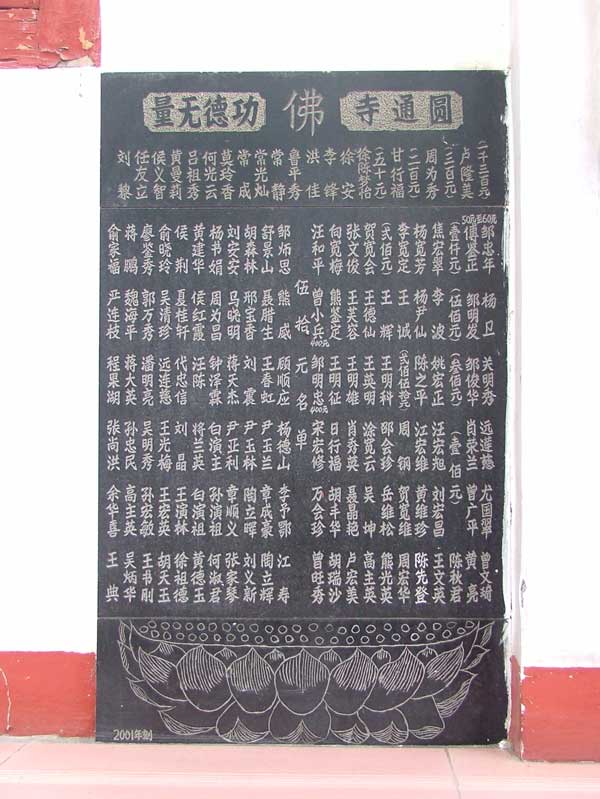 圆通寺
佛
功德无量
(一千三百元)
卢隆美
(三百元)
周为秀
(二百元)
甘行福
(五十元)
徐陈梦怡
徐安
李锋
洪佳
鲁平秀
常静
常光灿
常成
莫玲香
何光云
吕祖秀
黄曼莉
侯义智
任友立
刘黎
邹忠年 杨卫 关明秀 远莲慈 尤国翠 曾文琦
50元至60元
傅鉴正 邹明发 邹俊华 肖荣兰 曾广平 黄亮
(壹仟元) (伍佰元) (叁佰元) (壹佰元) 陈秋君
焦宏翠 李波 姚宏正 汪宏旭 刘宏昌 王文英
杨宽芳 杨尹仙 陈之平 江宏维 黄维珍 陈先登
李宽定 王诚 (贰佰伍拾元) 周钢 贺宽维 周宏华
(贰佰元) 王辉 王明科 邵会珍 岳维松 熊光英
贺宽会 王德仙 王英明 涂宽云 吴坤 高主英
张文俊 王芙容 王明雄 肖秀英 聂晶艳 卢宏美
向宽梅 熊鉴定 王明征 日行福 胡丰华 胡瑞沙
汪和平 曾小兵400元 邹明忠400元 宋宏修 万会珍 曾旺秀
伍拾元名单
邹炳思 熊威 顾顺应 杨德山 李予鄂 江寿
舒景山 聂腊生 王春虹 尹玉兰 章成豪 陶立辉
胡森林 邢宝香 刘震 尹玉林 陶立晖 刘义新
刘安安 马晓明 蒋天杰 尹亚利 章顺义 张家琴
杨书娟 周为昌 钟泽霖 白演主 孙演祖 何淑君
黄建华 侯红霞 汪陈 将兰英 白演祖 黄德玉
侯荆 夏桂轩 代忠信 刘晶 王演林 徐祖德
俞晓玲 吴清珍 远连慈 王光明 王宏英 胡天玉
廖鉴秀 郭万秀 潘明亮 吴明秀 孙宏敏 王书刚
蒋鹏 魏海平 蒋大英 孙忠民 高主英 吴炳华
俞家福 严连枝 程果湖 张尚洪 余华喜 王典
2001年刻